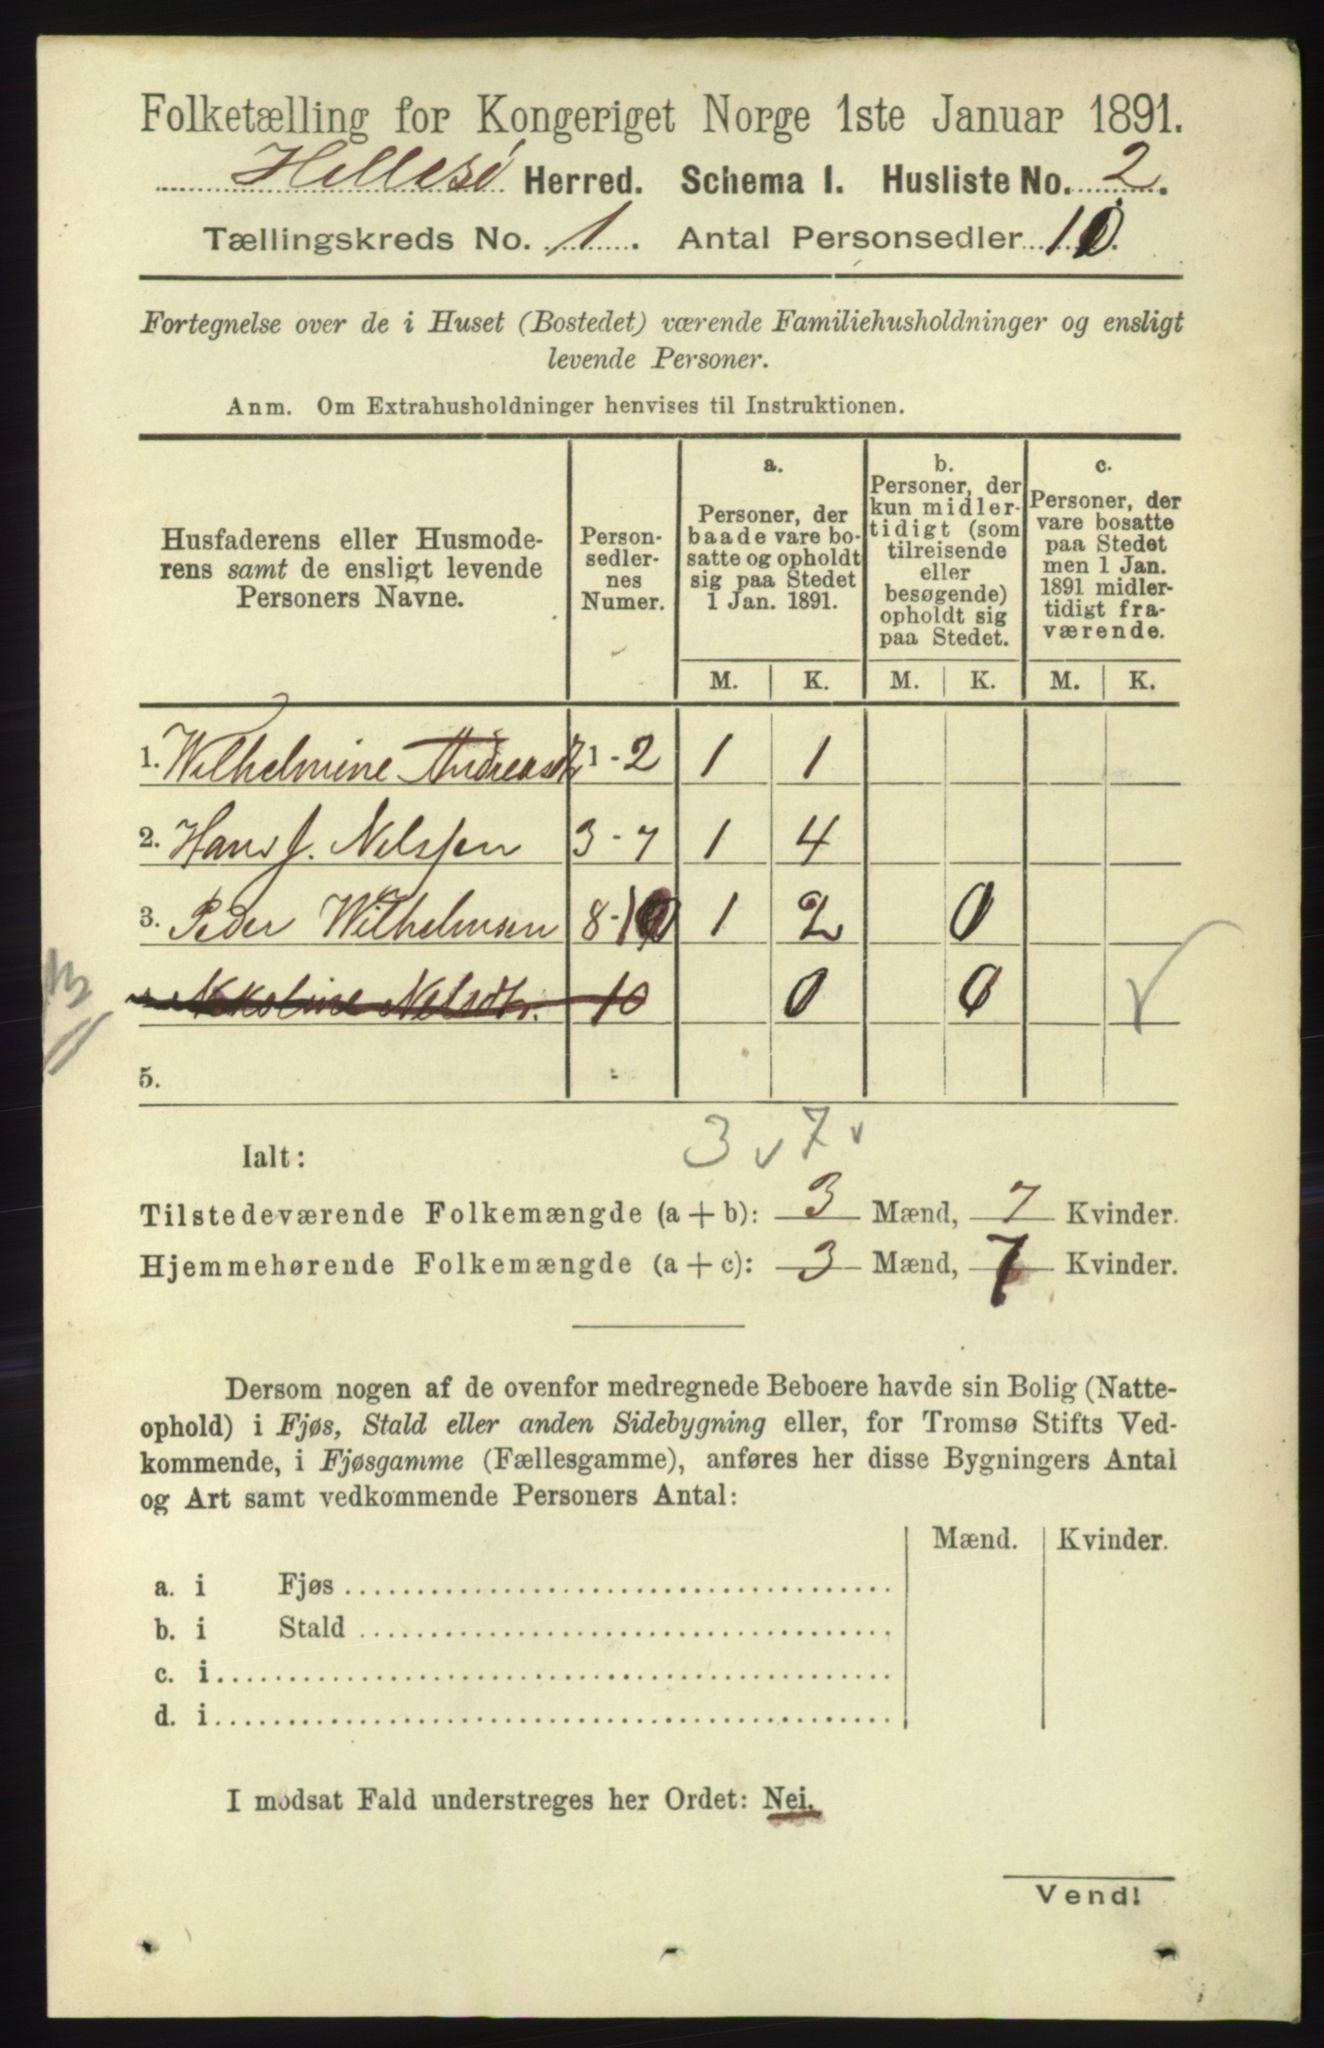 Folketælling for Kongeriget Norge 1ste Januar 1891.
Hillesø Herred. Schema I. Husliste No. 2.
Tællingskreds No. 1. Antal Personsedler 10.
Fortegnelse over de i Huset (Bostedet) værende Familiehusholdninger og ensligt
levende Personer.
Anm. Om Extrahusholdninger henvises til Instruktionen.
Husfaderens eller Husmode-
rens samt de ensligt levende
Personers Navne.
Person-
sedler-
nes
Numer.
a.
Personer, der
baade vare bo-
satte og opholdt
sig paa Stedet
1 Jan. 1891.
b.
Personer, der
kun midler-
tidigt (som
tilreisende
eller
besøgende)
opholdt sig
paa Stedet.
c.
Personer, der
vare bosatte
paa Stedet
men 1 Jan.
1891 midler-
tidigt fra-
værende.
M. K. M. K. M. K.
1. Wilhelmine Andreasd 1-2 1 1
2. Hans J. Nelssen 3-7 1 4
3. Peder Wilhelmsen 8-10 1 2 0
Nekoline Nelsdtr. 10 0 0
5.
3 7
Ialt:
Tilstedeværende Folkemængde (a + b): 3 Mænd, 7 Kvinder.
Hjemmehørende Folkemængde (a + c): 3 Mænd, 7 Kvinder.
Dersom nogen af de ovenfor medregnede Beboere havde sin Bolig (Natte-
ophold) i Fjøs, Stald eller anden Sidebygning eller, for Tromsø Stifts Ved-
kommende, i Fjøsgamme (Fællesgamme), anføres her disse Bygningers Antal
og Art samt vedkommende Personers Antal:
Mænd. Kvinder.
a. i Fjøs
b. i Stald
c. i
d. i
I modsat Fald understreges her Ordet: Nei.
Vend!